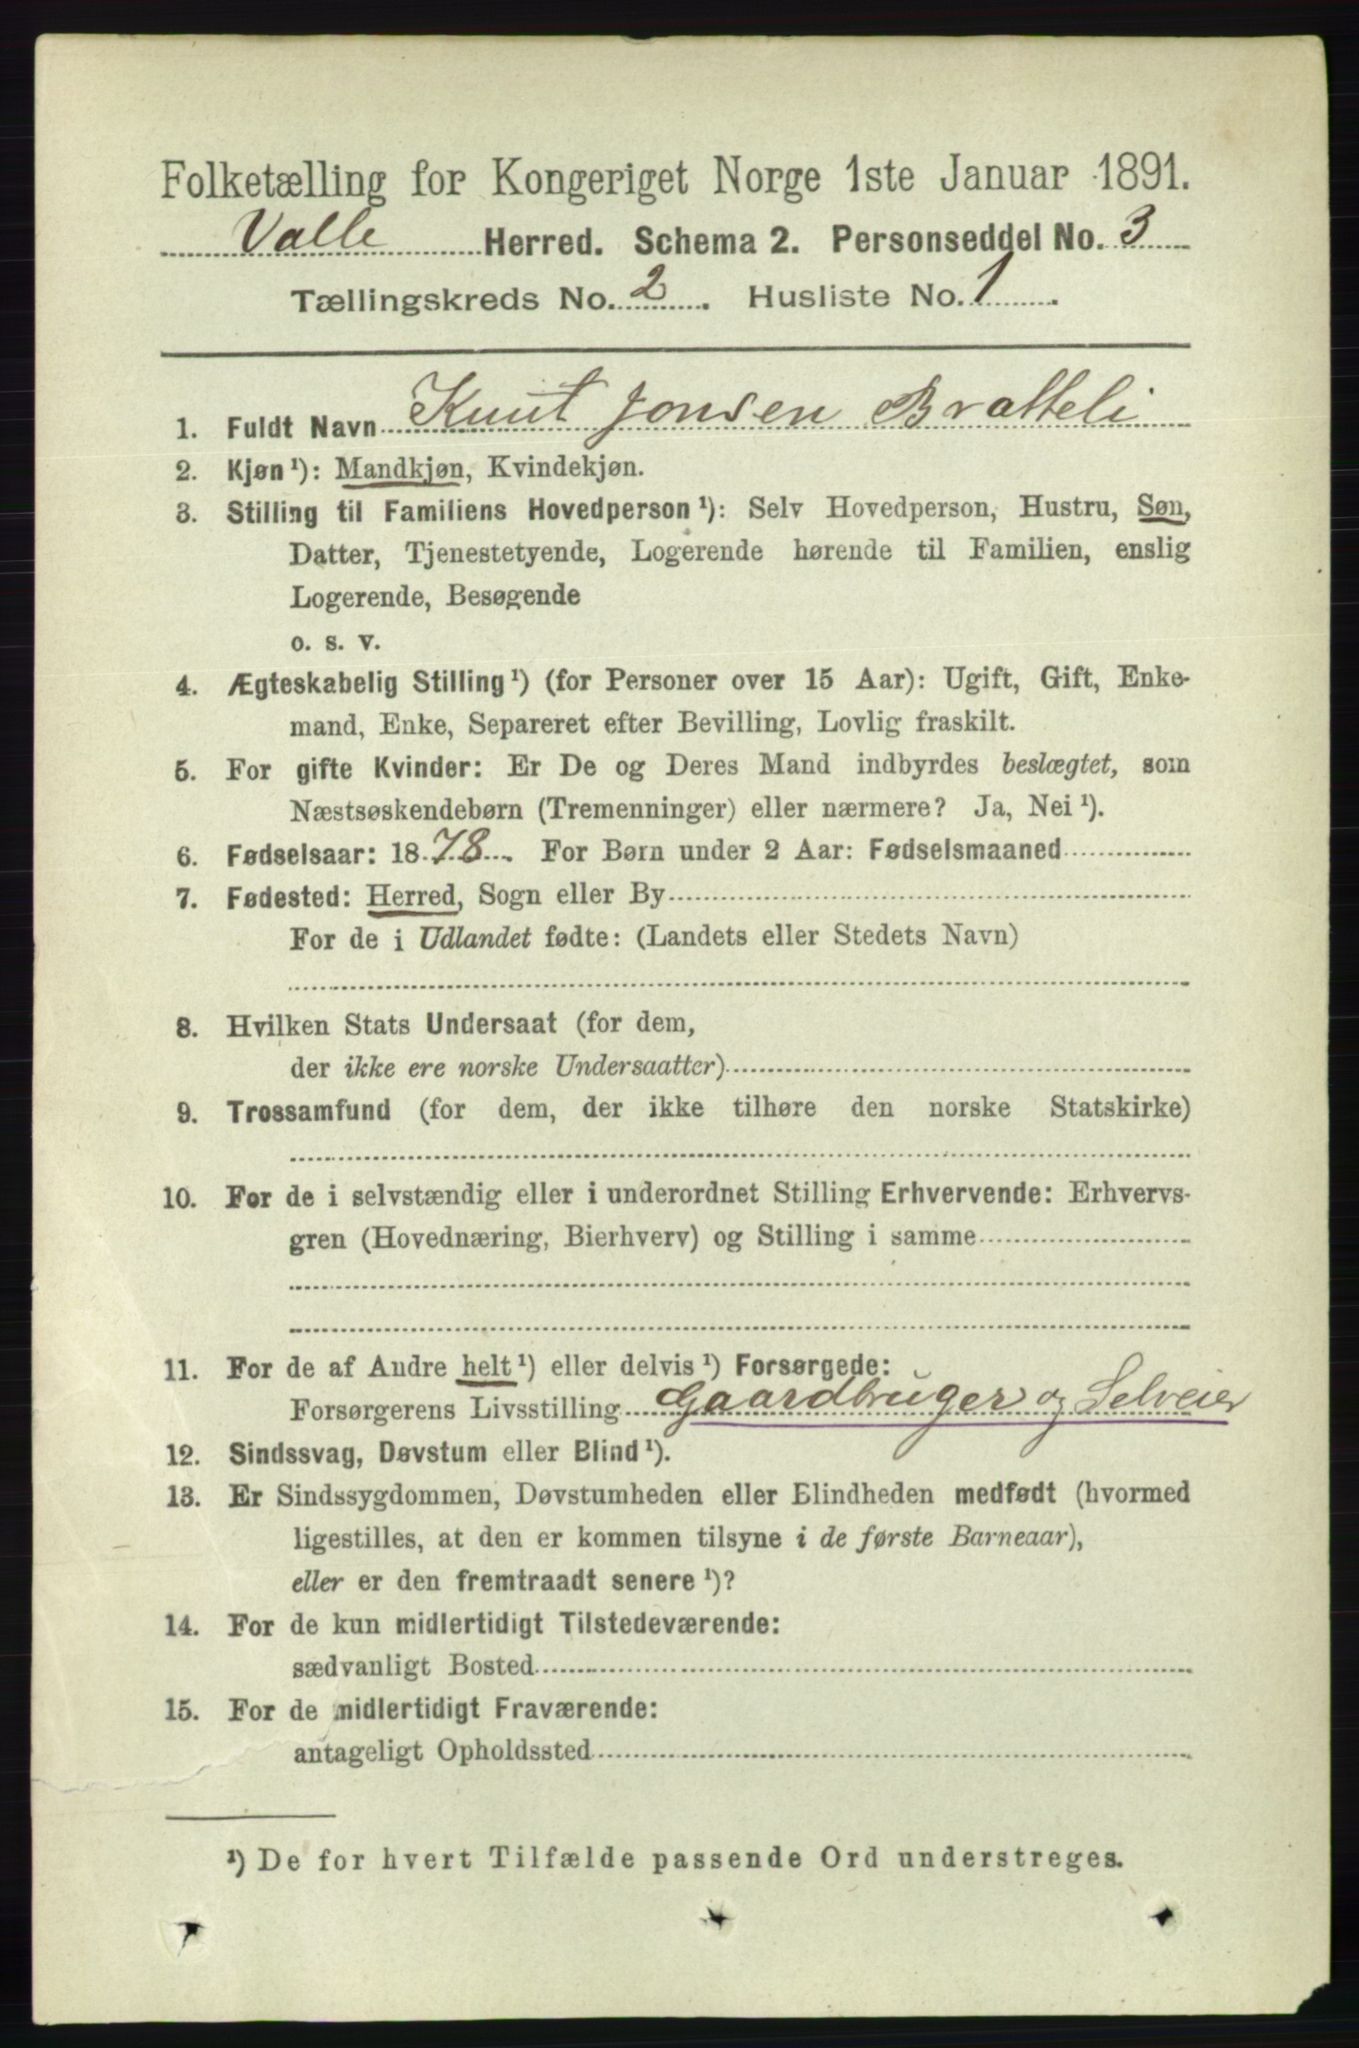 Folketælling for Kongeriget Norge 1ste Januar 1891.
Valle Herred. Schema 2. Personseddel No. 3
Tællingskreds No. 2. Husliste No. 1.
1. Fuldt Navn Knut Jonsen Bratteli
2. Kjøn¹): Mandkjøn, Kvindekjøn.
3. Stilling til Familiens Hovedperson¹): Selv Hovedperson, Hustru, Søn,
Datter, Tjenestetyende, Logerende hørende til Familien, enslig
Logerende, Besøgende
o. s. v.
4. Ægteskabelig Stilling¹) (for Personer over 15 Aar): Ugift, Gift, Enke-
mand, Enke, Separeret efter Bevilling, Lovlig fraskilt.
5. For gifte Kvinder: Er De og Deres Mand indbyrdes beslægtet, som
Næstsøskendebørn (Tremenninger) eller nærmere? Ja, Nei¹).
6. Fødselsaar: 1878. For Børn under 2 Aar: Fødselsmaaned
7. Fødested: Herred, Sogn eller By
For de i Udlandet fødte: (Landets eller Stedets Navn)
8. Hvilken Stats Undersaat (for dem,
der ikke ere norske Undersaatter)
9. Trossamfund (for dem, der ikke tilhøre den norske Statskirke)
10. For de i selvstændig eller i underordnet Stilling Erhvervende: Erhvervs-
gren (Hovednæring, Bierhverv) og Stilling i samme
11. For de af Andre helt¹) eller delvis¹) Forsørgede:
Forsørgerens Livsstilling Gaardbruger og Selveier
12. Sindssvag, Døvstum eller Blind¹).
13. Er Sindssygdommen, Døvstumheden eller Blindheden medfødt (hvormed
ligestilles, at den er kommen tilsyne i de første Barneaar),
eller er den fremtraadt senere¹)?
14. For de kun midlertidigt Tilstedeværende:
sædvanligt Bosted
15. For de midlertidigt Fraværende:
antageligt Opholdssted
¹) De for hvert Tilfælde passende Ord understreges.